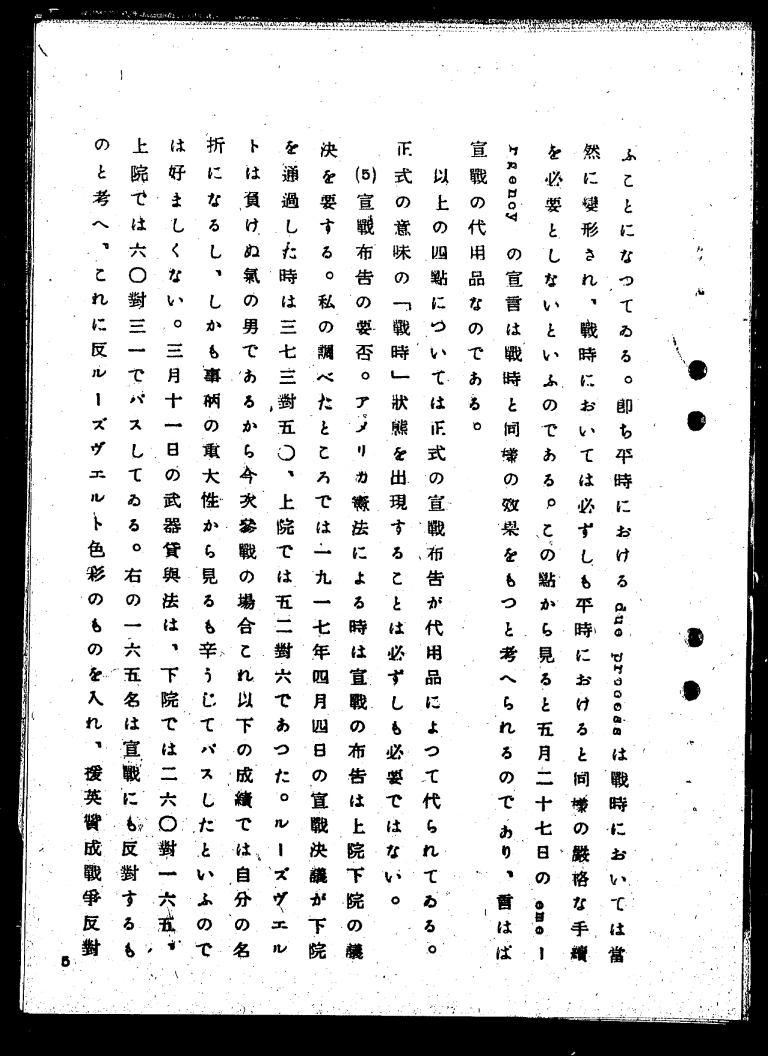 ふことになつてゐる。卽ち平時における due process は戰時においては當
然に變形され、戰時においては必ずしも平時におけると同樣の嚴格な手續
を必要としないといふのである。この點から見ると五月二十七日の eme-
rgency の宣言は戰時と同樣の效果をもつと考へられるのであり、言はば
宣戰の代用品なのである。
以上の四點については正式の宣戰布告が代用品によつて代られてゐる。
正式の意味の「戰時」狀態を出現することは必ずしも必要ではない。
(5) 宣戰布告の要否。アメリカ憲法による時は宣戰の布告は上院下院の議
決を要する。私の調べたところでは一九一七年四月四日の宣戰決議が下院
を通過した時は三七三對五〇、上院では五二對六であつた。ルーズヴエル
トは負けぬ氣の男であるから今次參戰の場合これ以下の成績では自分の名
折になるし、しかも事柄の重大性から見るも辛うじてパスしたといふので
は好ましくない。三月十一日の武器貸與法は、下院では二六〇對一六五、
上院では六〇對三一でパスしてゐる。右の一六五名は宣戰にも反對するも
のと考へ、これに反ルーズヴエルト色彩のものを入れ、援英贊成戰爭反對
5